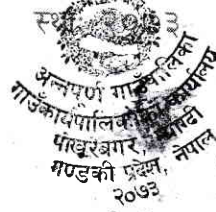 स्था
३
अन्नपूर्ण गाउँपालिका
गाउँकार्यपालिकाको कार्यालय
पोखरेबगर, म्याग्दी
गण्डकी प्रदेश, नेपाल
२०७३